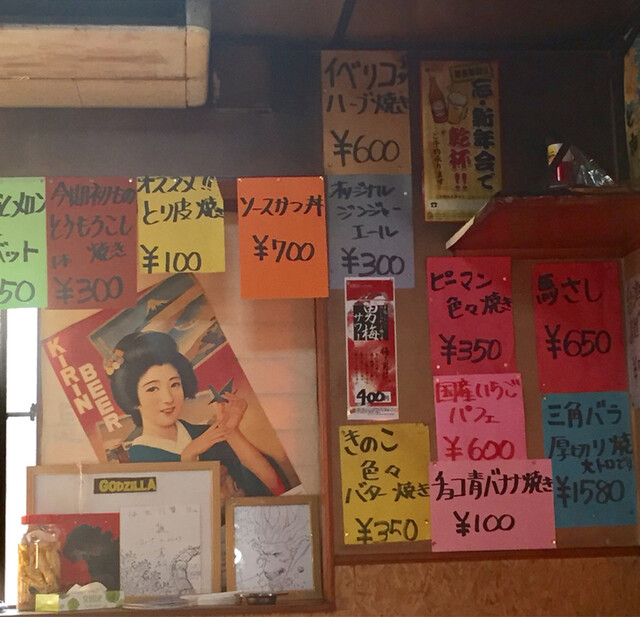 イベリコ
ハーブ焼き
¥600
忘・新年会で
乾杯!!
メロン
ベット
50
今期初もの
とうもろこし
焼き
¥300
オススメ!!
とり皮焼き
¥100
ソースかつ丼
¥700
オリジナル
ジンジャー
エール
¥300
男梅
サワー
400円
ピーマン
色々焼き
¥350
馬さし
¥650
国産いちご
パフェ
¥600
三角バラ
厚切り焼
大トロです
¥1580
きのこ
色々
バター焼き
¥350
チョコ青バナナ焼き
¥100
KIRIN
BEER
GODZILLA